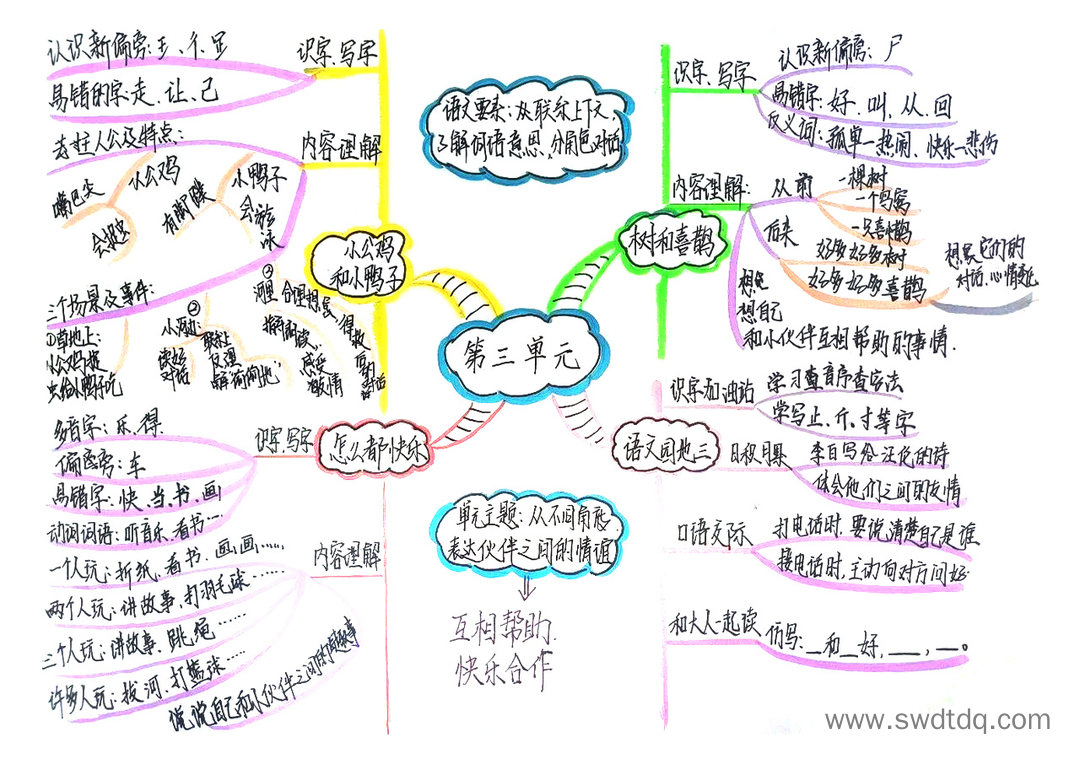 第三单元
语文要素:从联系上下文,
了解词语意思,分角色对话
小公鸡
和小鸭子
识字、写字
认识新偏旁:王、彳、足
易错的字:走、让、己
内容理解
主人公及特点:
小公鸡
嘴巴尖
会捉虫
小鸭子
有脚蹼
会游泳
三个场景及事件:
①草地上:
小公鸡捉
虫给小鸭子吃
②
小河边:
读好
对话
联
反复
偷偷地
③
河里
合理想象,
指导朗读,
感受
激情
得救
后的
对话
树和喜鹊
识字、写字
认识新偏旁:尸
易错字:好、叫、从、回
反义词:孤单—热闹、快乐—悲伤
内容理解:
从前
一棵树
一个鸟窝
一只喜鹊
后来
好多好多树
好多好多喜鹊
想象它们的
对话、心情变化
想想自己
和小伙伴互相帮助的事情.
怎么都快乐
识字、写字
多音字:乐、得
偏旁:车
易错字:快、当、书、画
动词词语:听音乐、看书……
内容理解
一个人玩:折纸、看书、画画……
两个人玩:讲故事、打羽毛球……
三个人玩:讲故事、跳绳……
许多人玩:拔河、打篮球……
说说自己和小伙伴之间的趣事
语文园地三
识字加油站
学习查音序查字法
学写止、斤、寸等字
日积月累
李白写给汪伦的诗
体会他们之间的友情
口语交际
打电话时,要说清楚自己是谁
接电话时,主动向对方问好
和大人一起读
仿写:__和__好,___,__。
单元主题:从不同角形
表达伙伴之间的情谊
互相帮助.
快乐合作
www.swdtdq.com